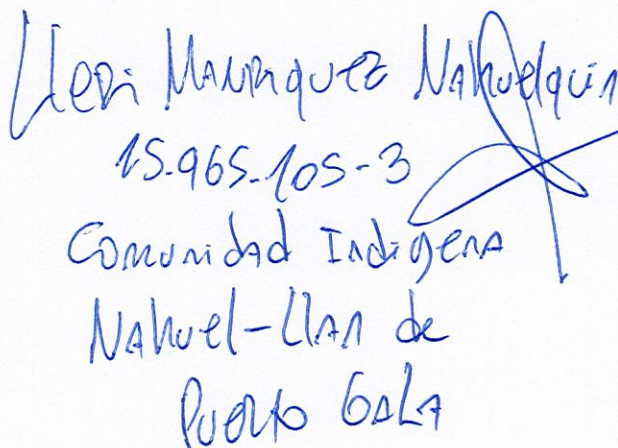 Lleri Manriquez Nahuelquin
15.965.105-3
Comunidad Indigena
Nahuel-Llan de
Puerto Gala